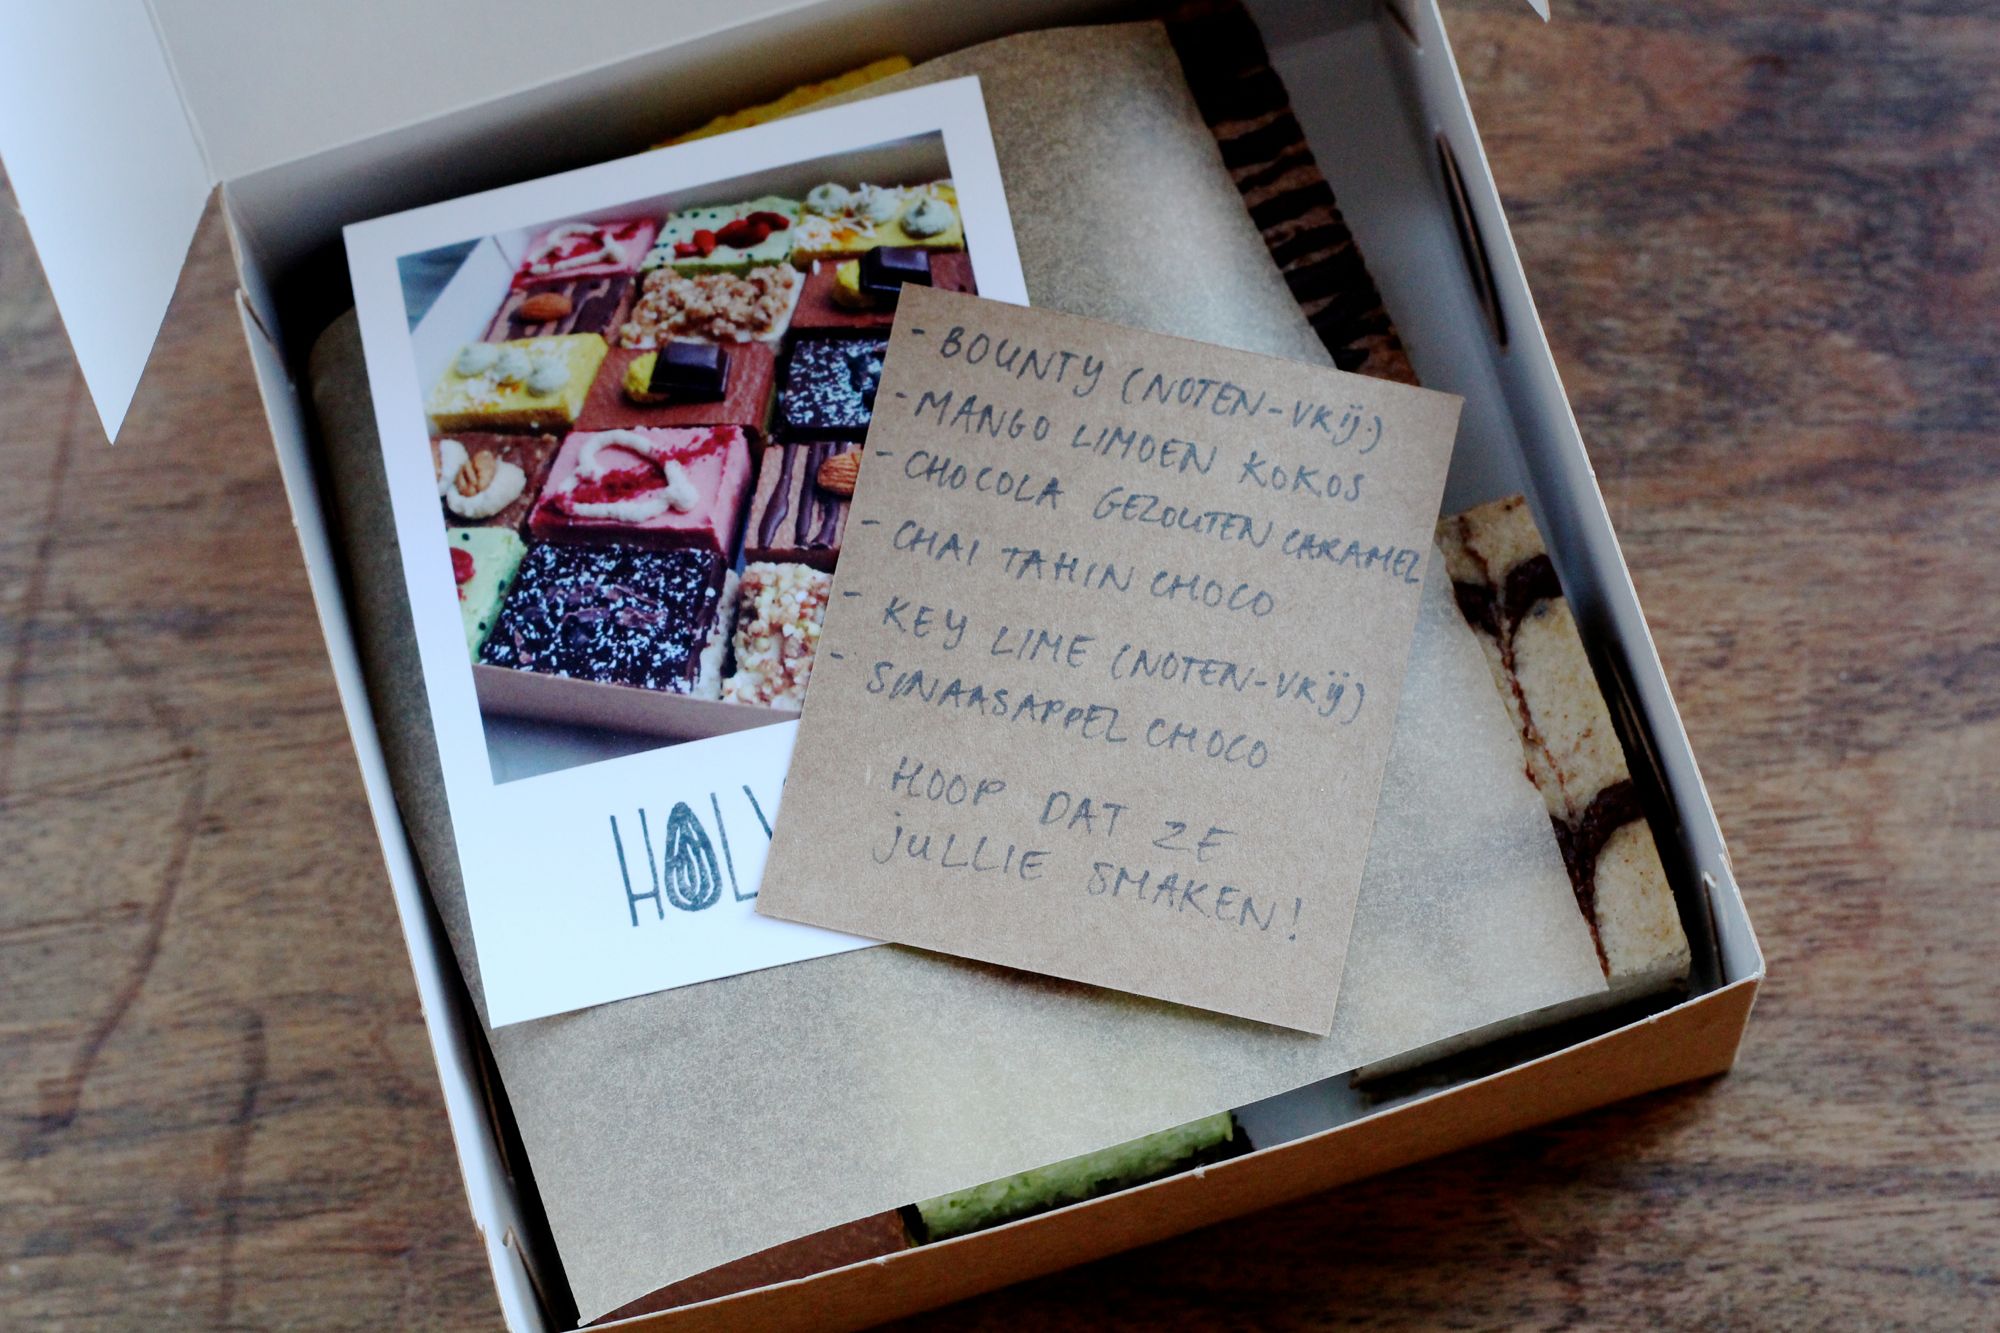 - BOUNTY (NOTEN-VRIJ)
- MANGO LIMOEN KOKOS
- CHOCOLA GEZOUTEN CARAMEL
- CHAI TAHIN CHOCO
- KEY LIME (NOTEN-VRIJ)
- SINAASAPPEL CHOCO
HOOP DAT ZE
JULLIE SMAKEN!
HOLY